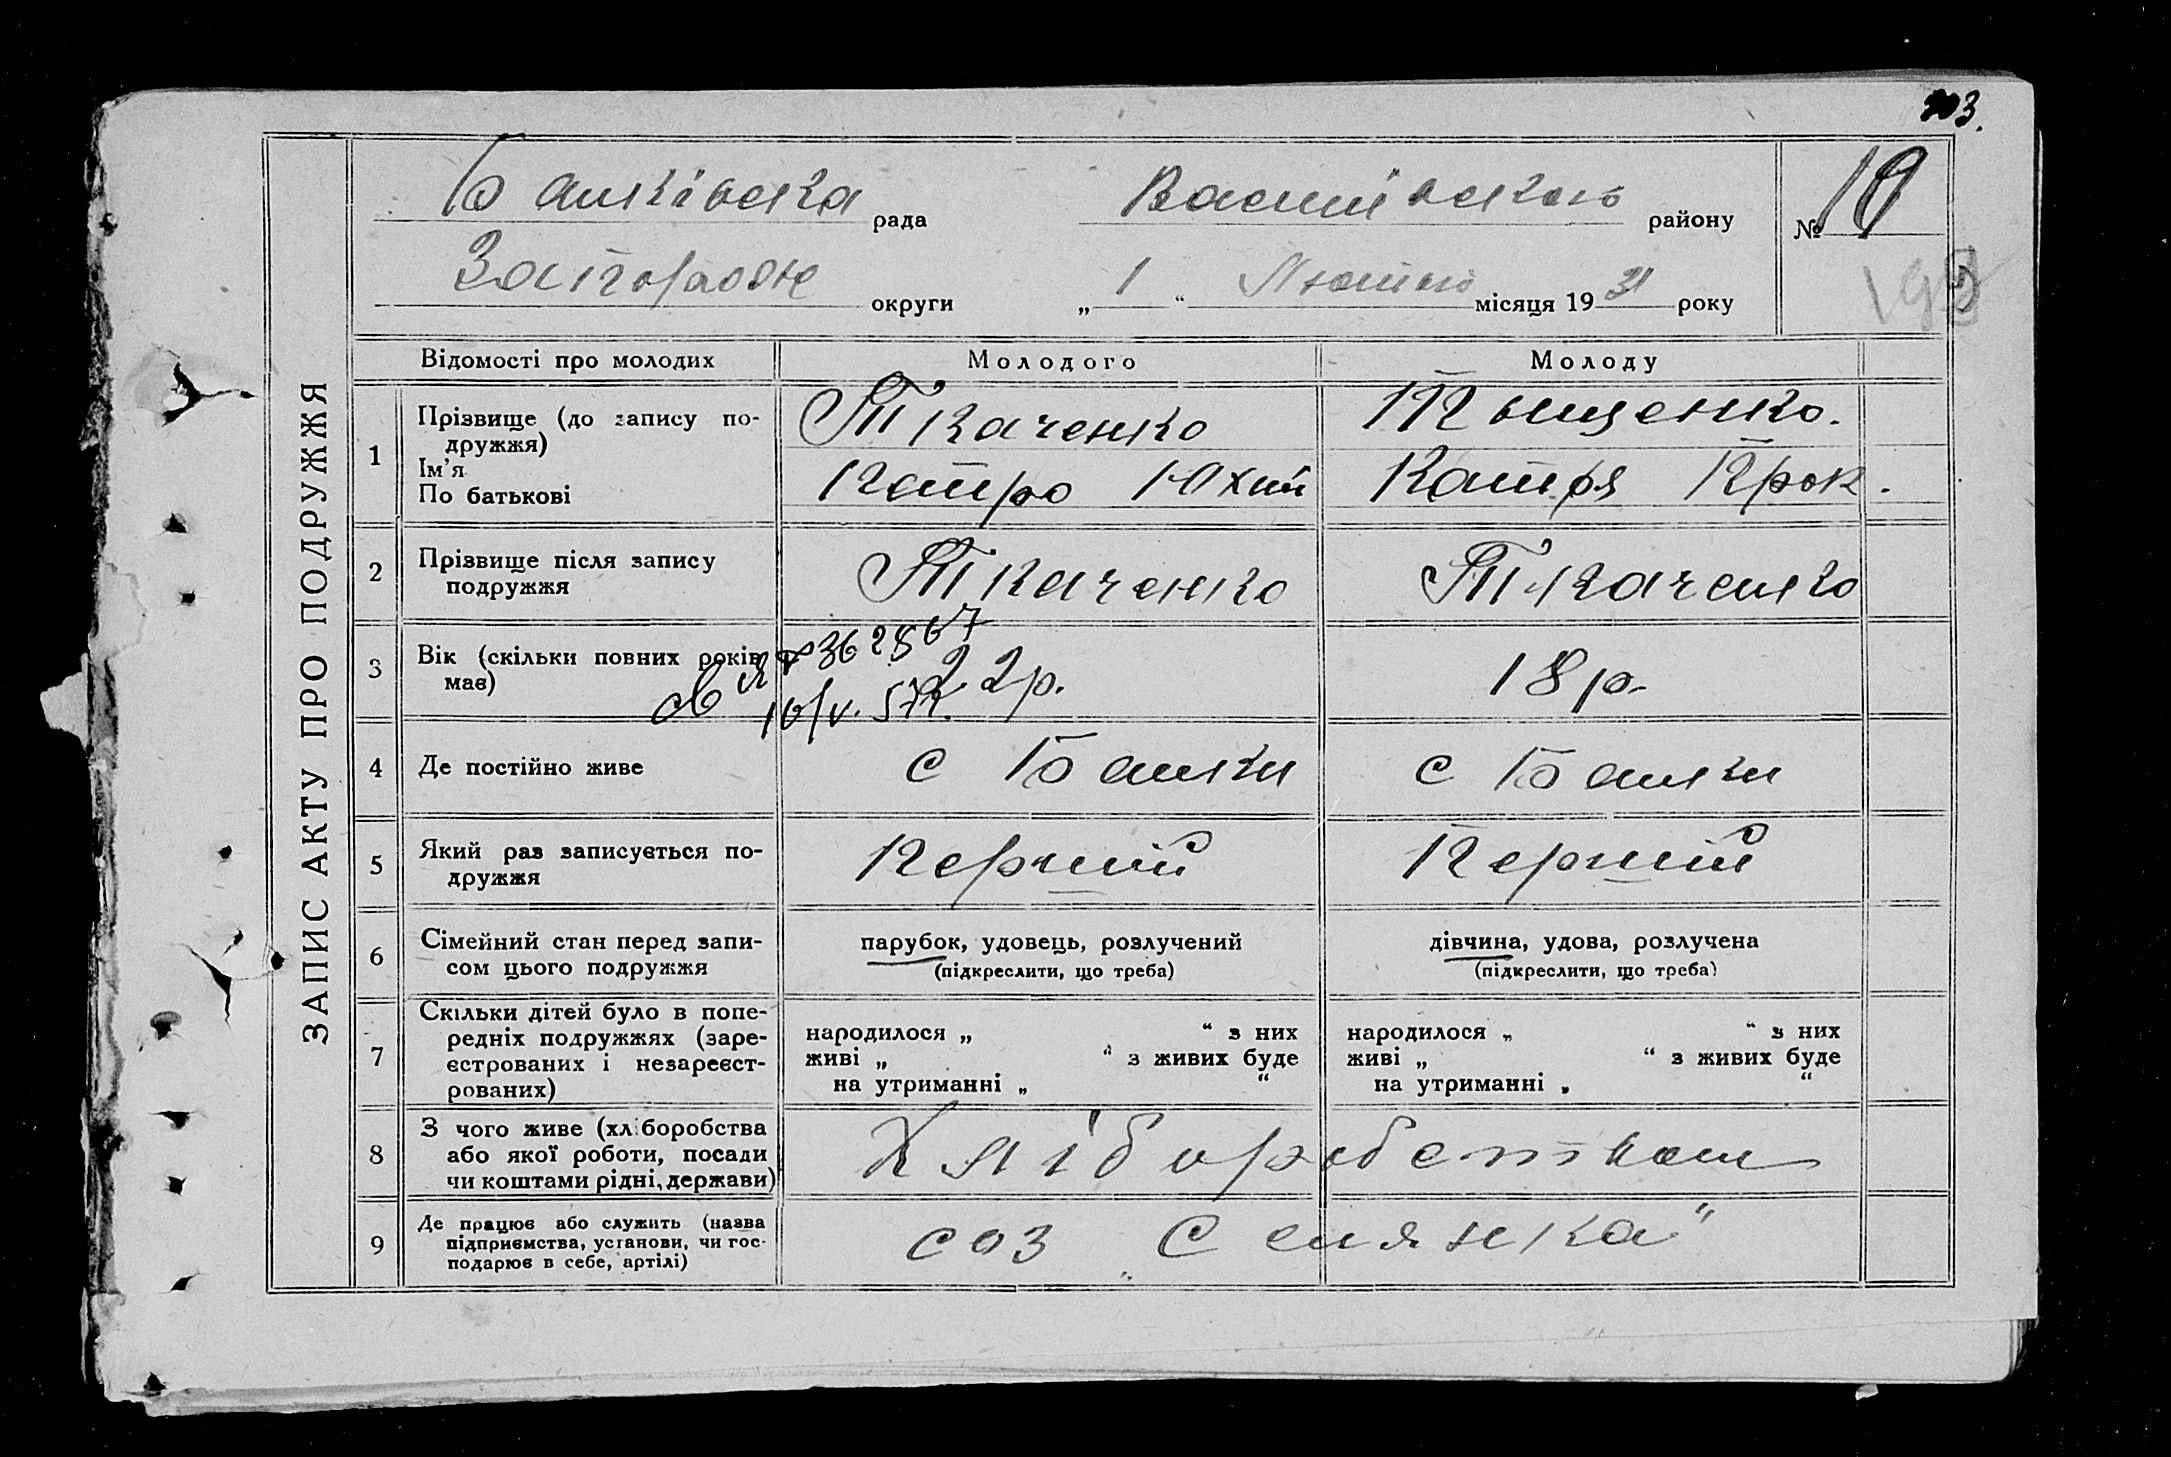 203.
Балківська рада Василівського району № 10
Запоріжже округи „ 1 “ Лютого місяця 19 31 року
ЗАПИС АКТУ ПРО ПОДРУЖЖЯ
Відомості про молодих Молодого Молоду
1 Прізвище (до запису по-
дружжя)
Ткаченко Тищенко.
Ім'я
По батькові
Петро Юхим Катря Прок.
2 Прізвище після запису
подружжя
Ткаченко Ткаченко
3 Вік (скільки повних років
має)
22р. 18р.
4 Де постійно живе с Балки с Балки
5 Який раз записується по-
дружжя
Перший Перший
6 Сімейний стан перед запи-
сом цього подружжя
парубок, удовець, розлучений
(підкреслити, що треба)
дівчина, удова, розлучена
(підкреслити, що треба)
7 Скільки дітей було в попе-
редніх подружжях (заре-
єстрованих і незареєст-
рованих)
народилося „ “ з них
живі „ “ з живих буде
на утриманні „ “
народилося „ “ з них
живі „ “ з живих буде
на утриманні „ “
8 З чого живе (хліборобства
або якої роботи, посади
чи коштами рідні, держави)
Хліборобством
9 Де працює або служить (назва
підприємства, установи, чи гос-
подарює в себе, артілі)
соз „Селянка“